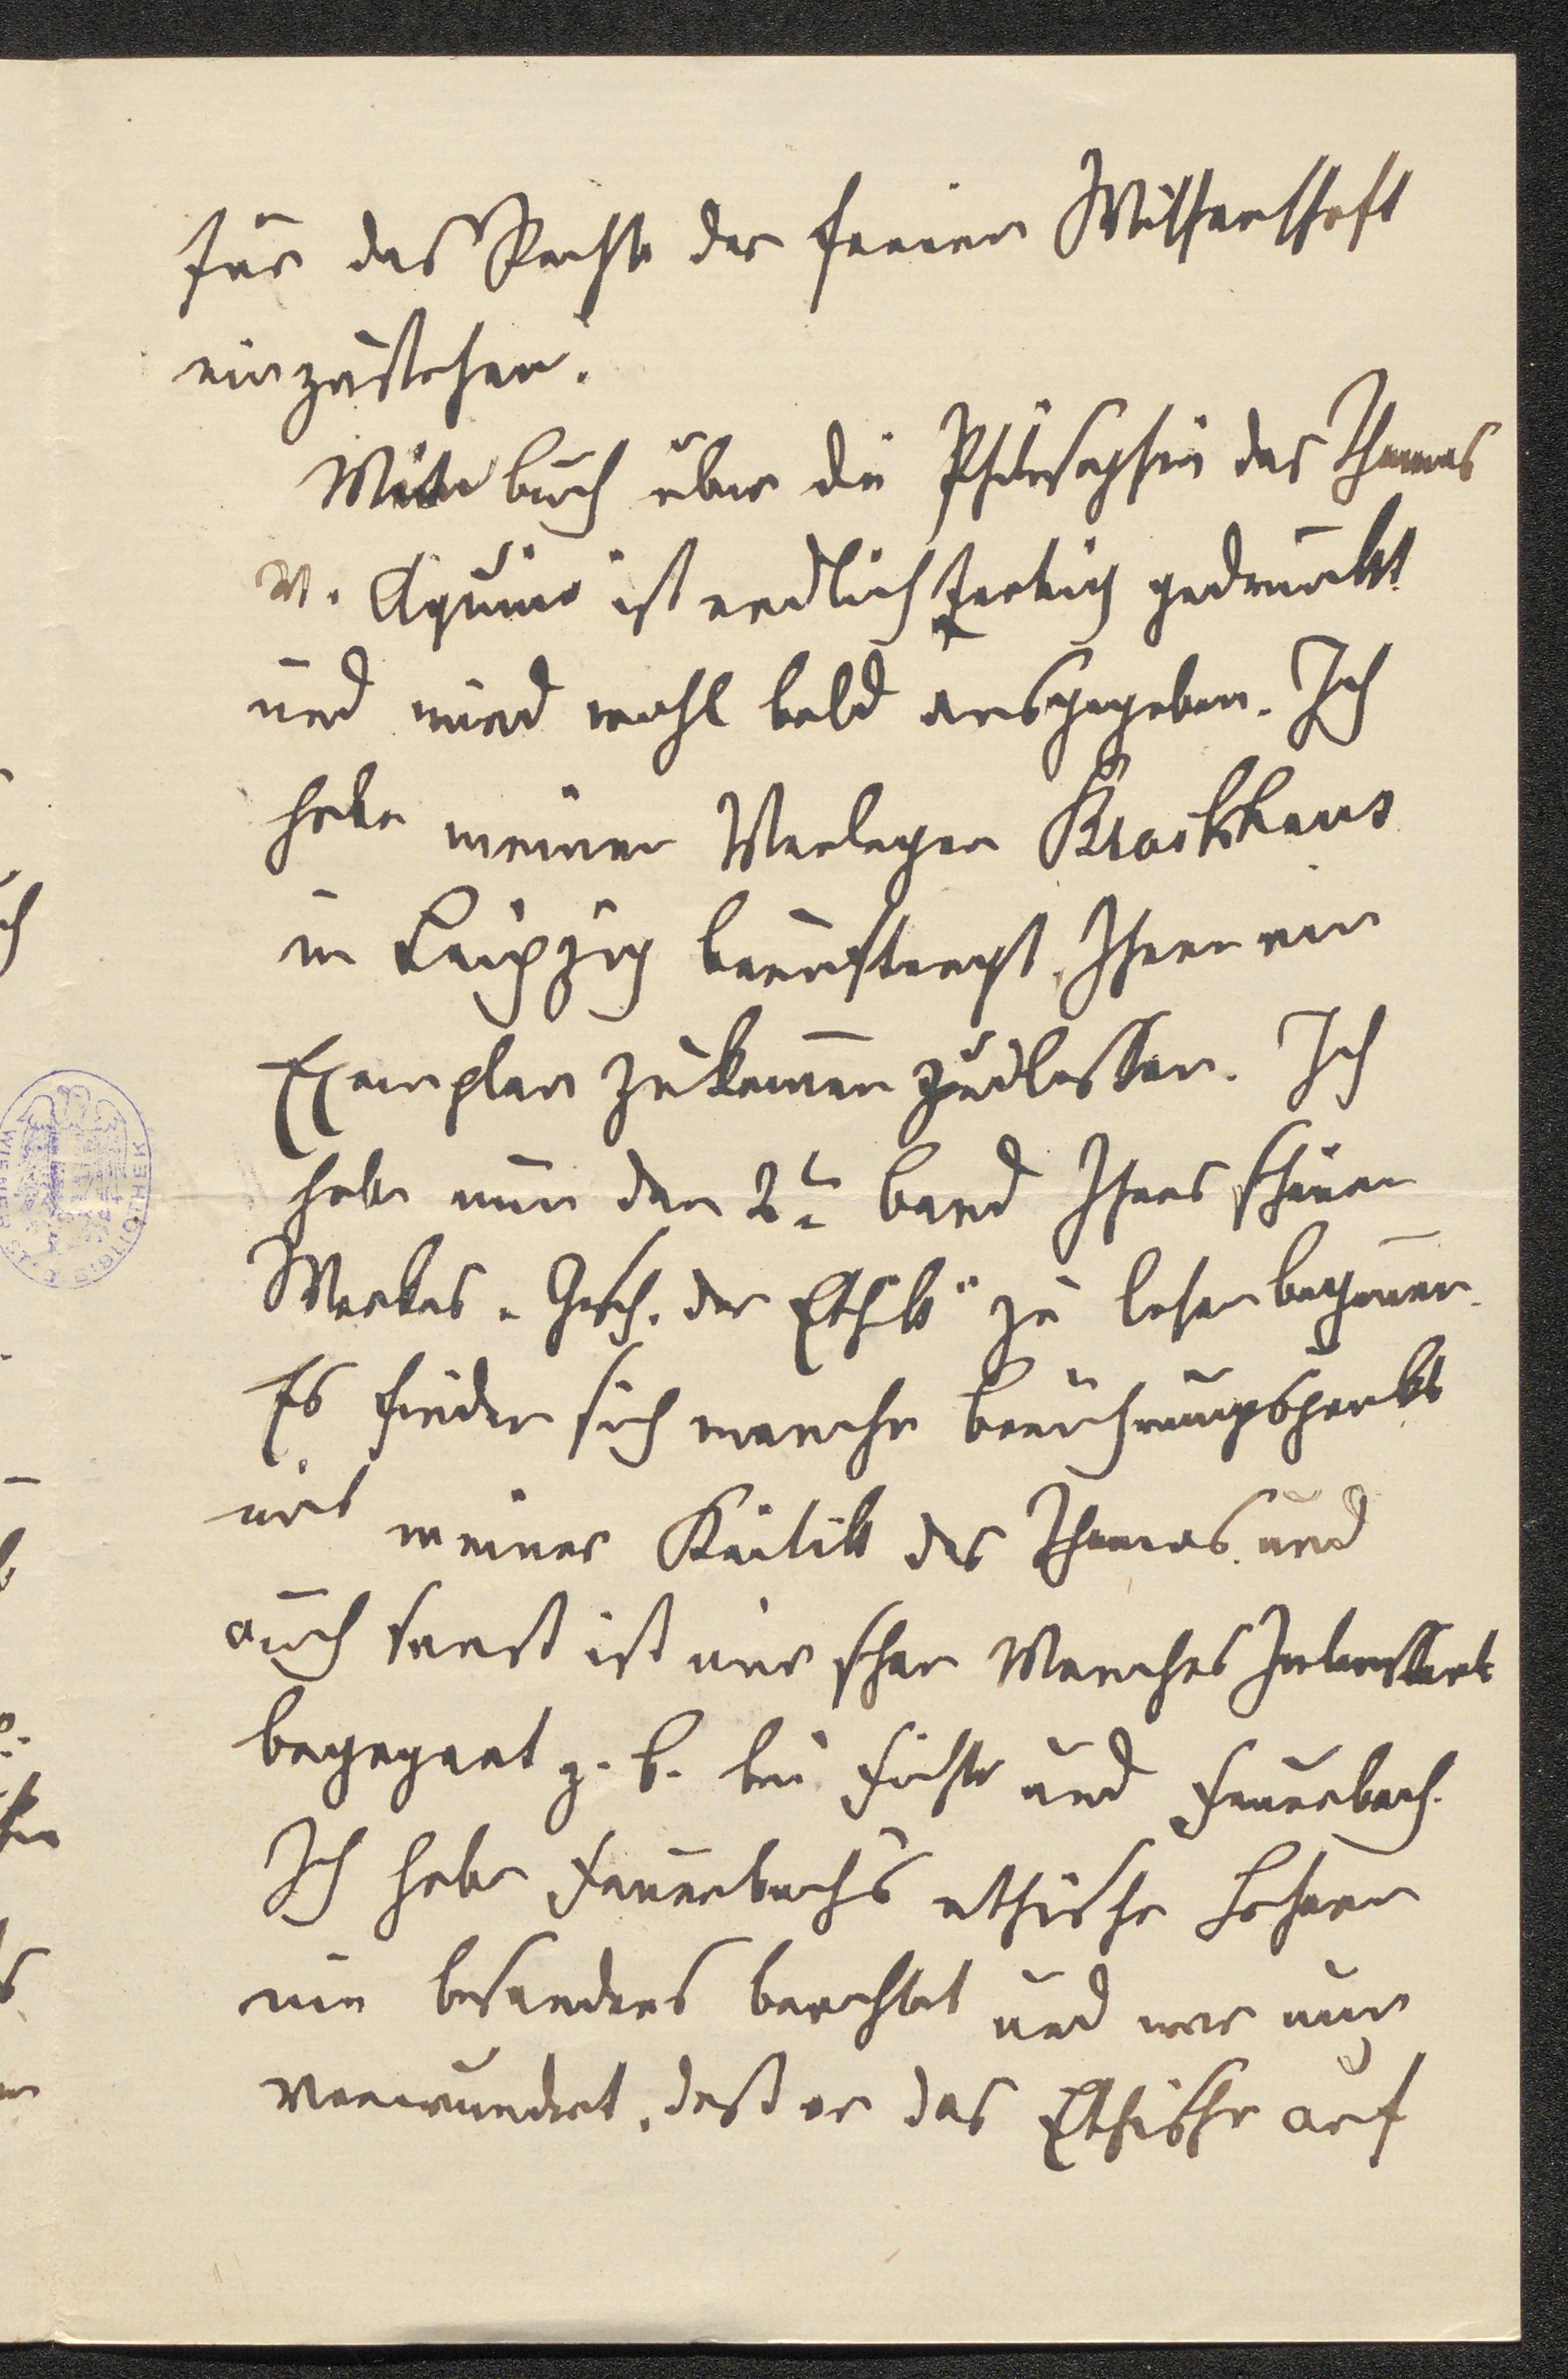 für das Rechte der freien Wissenschaft
einzustehen.
Mein Buch über die Philosophie des Thomas
v. Aquino ist endlich fertig gedruckt
und wird wohl bald ausgegeben. Ich
habe meinen Verleger Brockhaus
in Leipzig beauftragt, Ihnen ein
Exemplar zukom̄en zu lassen. Ich
habe nun den 2ten Band Ihres schönen
Werkes „Gesch. der Ethik" zu lesen begon̄en.
Es finden sich manche Berührungspunkte
mit meiner Kritik des Thomas und
auch sonst ist mir schon Manches Interessante
begegnet z. B. bei Fichte und Feuerbach.
Ich habe Feuerbach's ethische Lehren
nie besonders beachtet und war nun
verwundert, daß er das Ethische auf